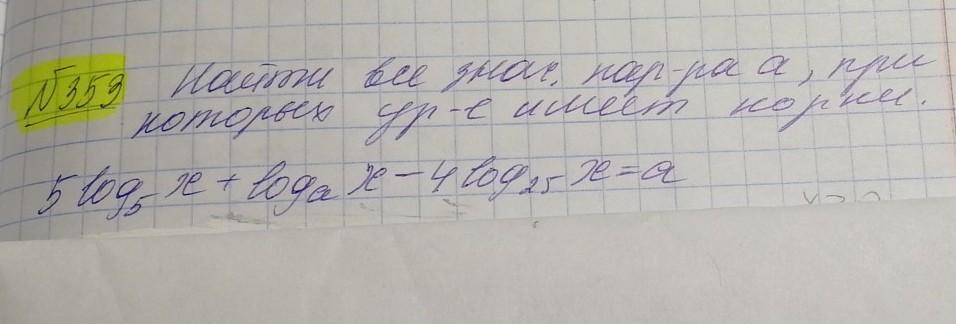 №353 Найти все знач. пар-ра а, при
которых ур-е имеет корни.
5 log₅ x + logₐ x − 4 log₂₅ x = a